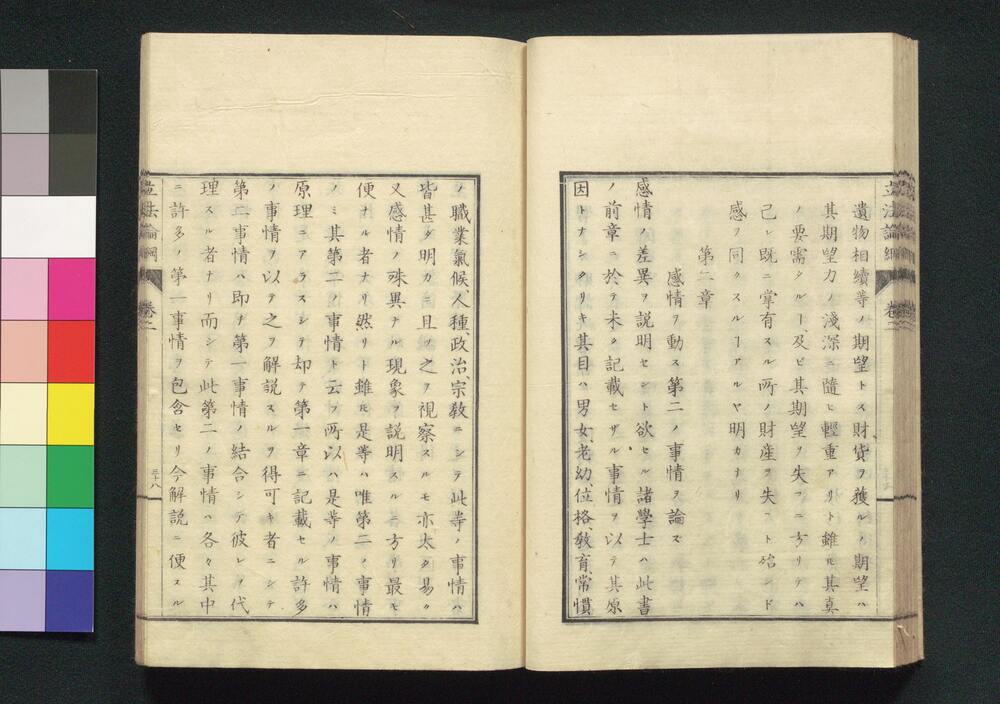 立法論綱 卷二
遺物相續等ノ期望トス財貨ヲ獲ルノ期望ハ
其期望力ノ淺深ニ隨ヒ輕重アリト雖ヒ其真
ノ要需タルヿ及ビ其期望ヲ失フニ方リテハ
己レ既ニ掌有スル所ノ財産ヲ失フト殆ンド
感ヲ同クスルヿアルヤ明カナリ
第二章
感情ヲ動ス第二ノ事情ヲ論ズ
感情ノ差異ヲ説明セント欲セル諸學士ハ此書
ノ前章ニ於テ未タ記載セザル事情ヲ以テ其原
因トナシタリキ其目ハ男女、老幼、位格、教育、常慣
ノ職業氣候、人種、政治、宗教ニシテ此等ノ事情ハ
皆甚ダ明カニ且ツ之ヲ視察スルモ亦太タ易ク
又感情ノ殊異ナル現象ヲ説明スルニ方リ最モ
便ナル者ナリ然リト雖ヒ是等ハ唯第二ノ事情
ノミ其第二ノ事情ト云フ所以ハ是等ノ事情ハ
原理ニアラスシテ却テ第一章ニ記載セル許多
ノ事情ヲ以テ之ヲ解説スルヲ得可キ者ニシテ
第二事情ハ即チ第一事情ノ結合シテ彼レヲ代
理スル者ナリ而シテ此第二ノ事情ハ各々其中
ニ許多ノ第一事情ヲ包含セリ今解説ニ便スル
立法論綱 卷二 三十八